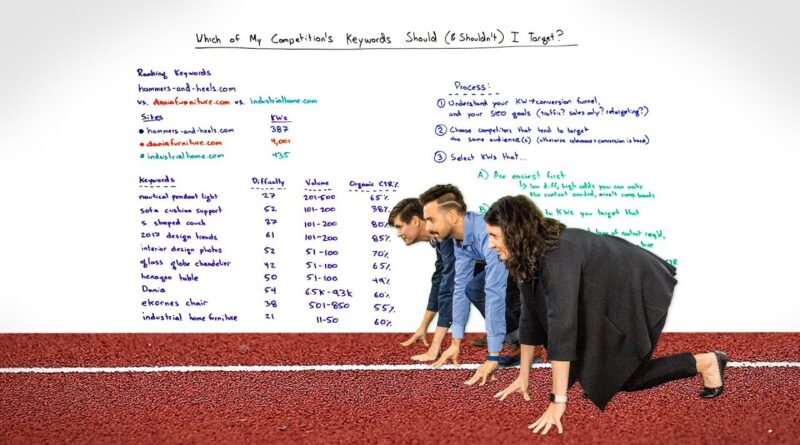 Which of My Competition's Keywords Should (& Shouldn't) I Target?
Ranking Keywords
hammers-and-heels.com
vs. daniafurniture.com vs. industrialhome.com
Sites KWs
hammers-and-heels.com 387
daniafurniture.com 4,001
industrialhome.com 435
Keywords Difficulty Volume Organic CTR%
nautical pendant light 27 201-500 65%
sofa cushion support 52 101-200 38%
s shaped couch 37 101-200 80%
2017 design trends 61 101-200 85%
interior design photos 52 51-100 70%
glass globe chandelier 42 51-100 65%
hexagon table 50 51-100 49%
Dania 54 6.5K-9.3K 60%
ekornes chair 38 501-850 55%
industrial home furniture 21 11-50 60%
Process:
① Understand your KW→conversion funnel,
and your SEO goals (traffic? sales only? retargeting?)
② Choose competitors that tend to target
the same audience(s) (otherwise relevance & conversion is hard)
③ Select KWs that...
A) Are easiest first
↳ low diff, high odds you can make
the content needed, aren't comp brands
to KWs you target that
of content req'd,
CTR